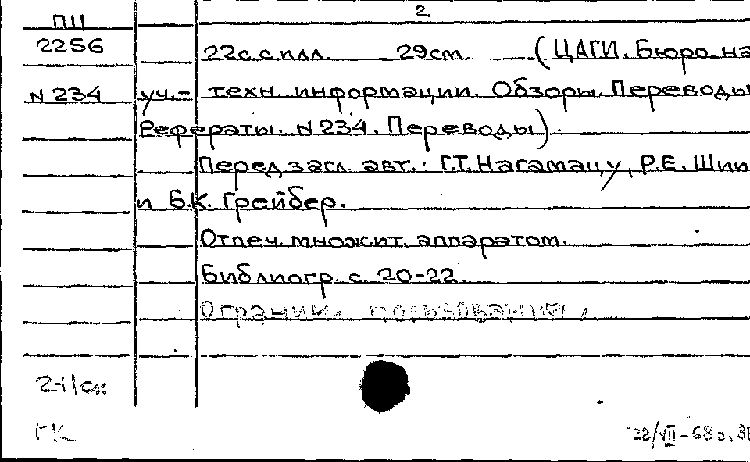 ПШ 2
2256 22с.с илл. 29см. (ЦАГИ. Бюро на
N 234 уч.- техн. информации. Обзоры. Переводы
Рефераты. N 234. Переводы).
Перед загл. авт.: Г.Т. Нагамацу, Р.Е. Шии
и Б.К. Грейбер.
Отпеч. множит. аппаратом.
Библиогр. с. 20-22
Огранич. пользования.
ГК 22/VII-68г.